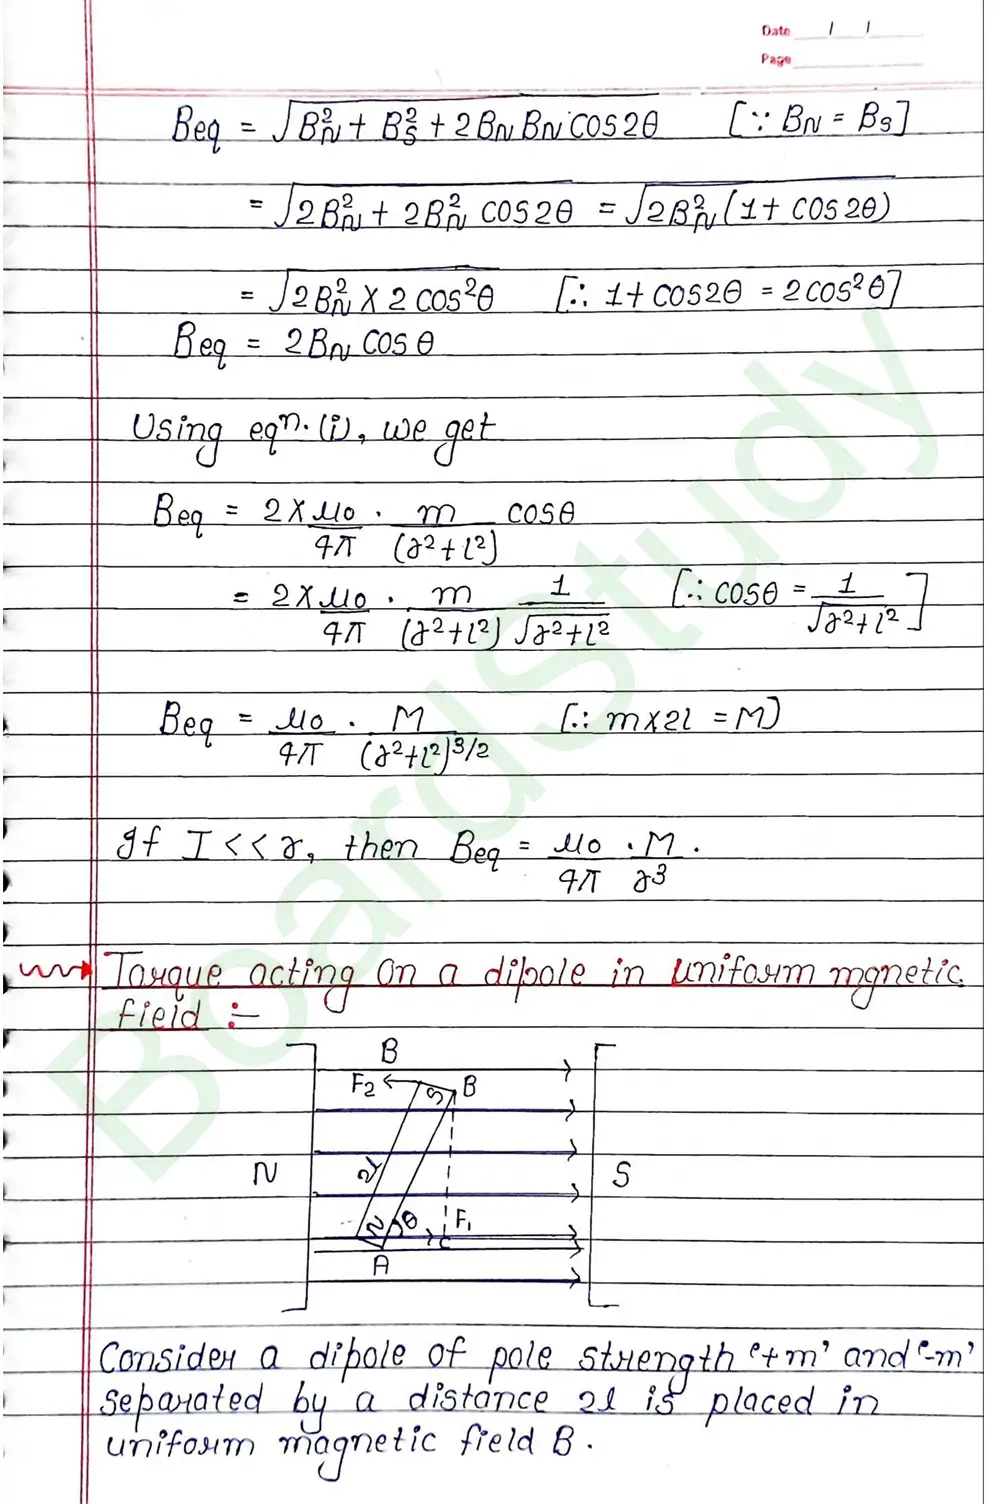 Date / /
Page
Beq = √B²N + B²S + 2BN BN COS2θ [∵ BN = BS]
= √2B²N + 2B²N COS2θ = √2B²N (1 + COS2θ)
= √2B²N X 2 COS²θ [∴ 1 + COS2θ = 2COS²θ]
Beq = 2BN COSθ
Using eqⁿ. (i), we get
Beq = 2 X μ0/4π · m/(r² + l²) COSθ
= 2 X μ0/4π · m/(r² + l²) 1/√r² + l² [∴ COSθ = 1/√r² + l²]
Beq = μ0/4π · M/(r² + l²)^3/2 [∴ m X 2l = M)
If I << r, then Beq = μ0/4π · M/r³ .
Torque acting on a dipole in uniform mgnetic
field :-
B
F2 S B
N 2l S
N θ F1
C
A
Consider a dipole of pole strength '+m' and '-m'
separated by a distance 2l is placed in
uniform magnetic field B.
BoardStudy